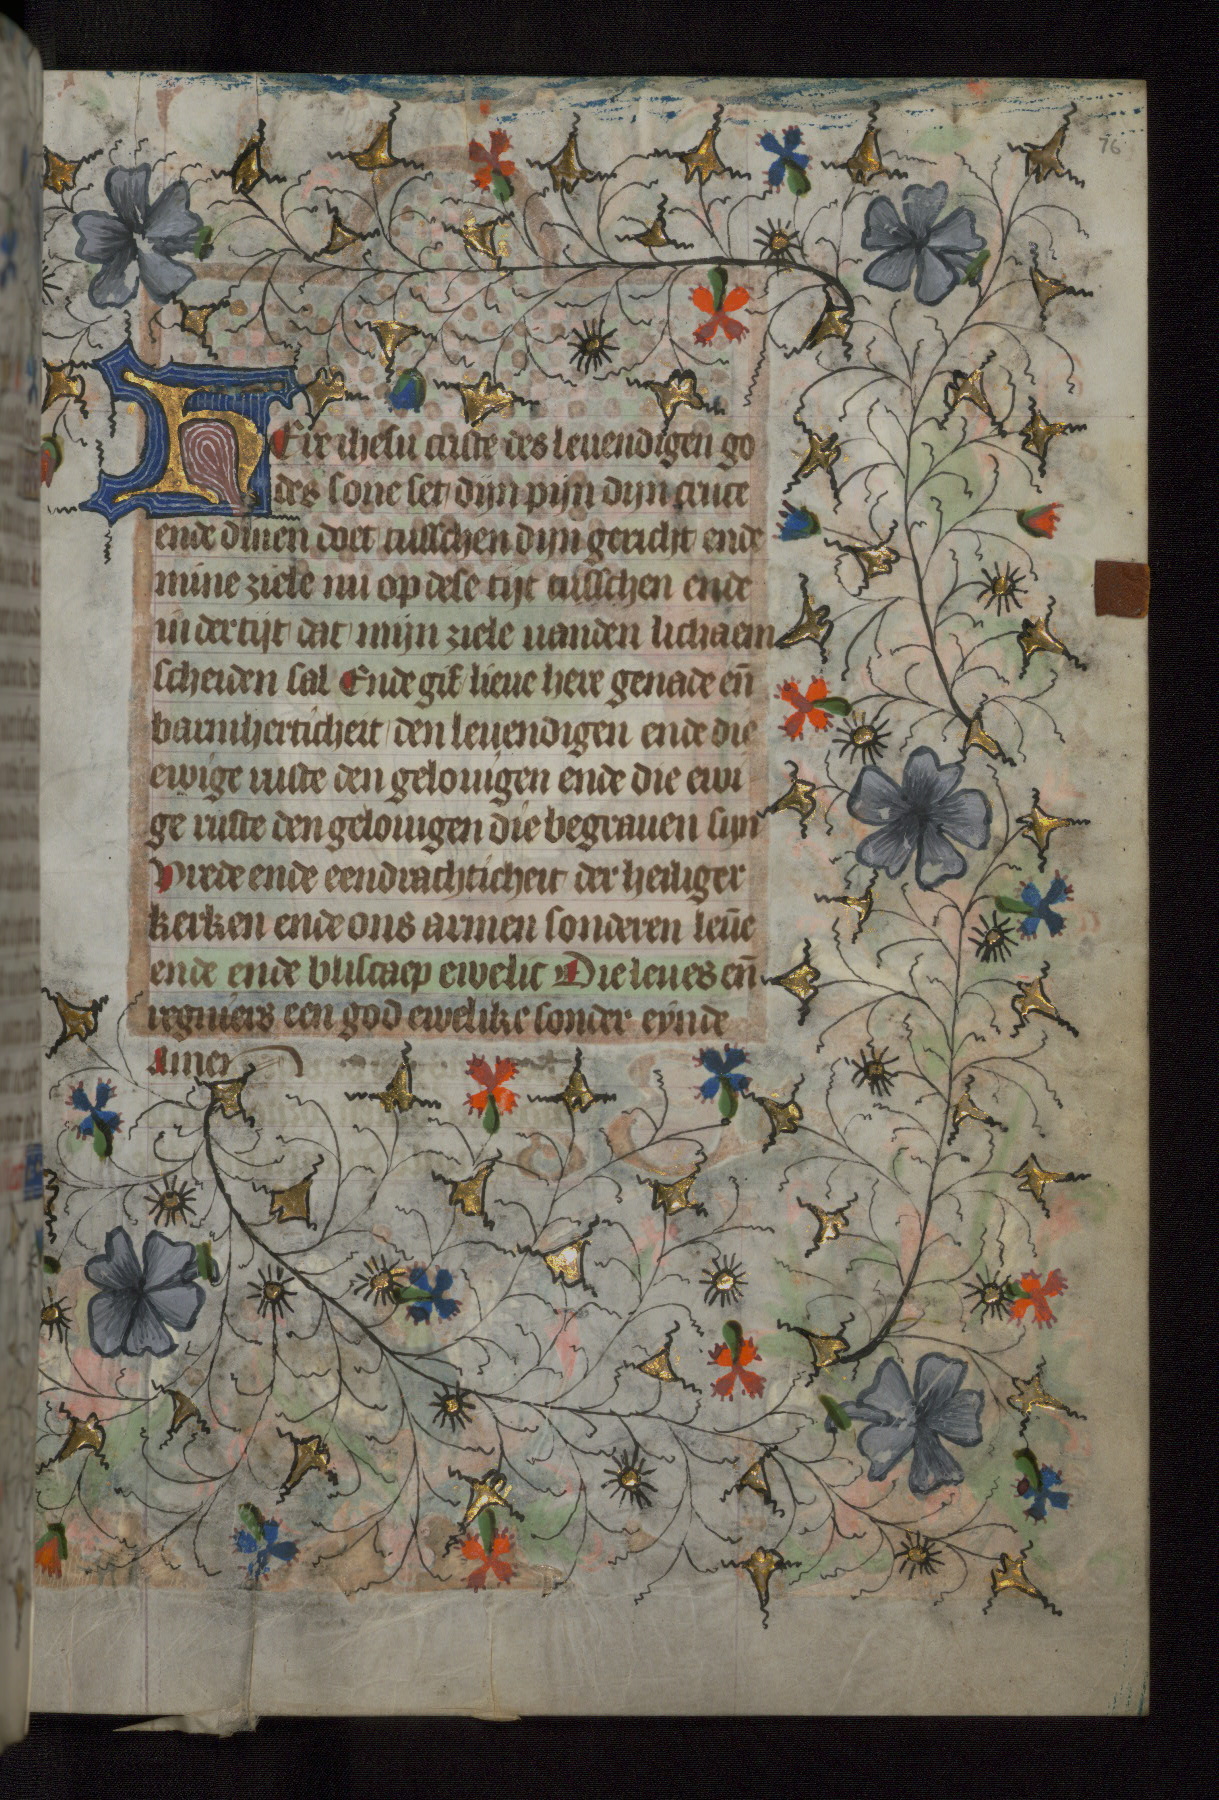 76
HEre ihesu criste des leuendigen go
des sone set dijn pijn dijn cruce
ende dinen doet tusschen dijn gericht ende
mine ziele nu op dese tijt tusschen ende
in der tijt dat mijn ziele uanden lichaem
scheiden sal Ende gif lieue here genade en̄
barmherticheit den leuendigen ende die
ewige ruste den gelouigen ende die ewi
ge ruste den gelouigen die begrauen sijn
Vrede ende eendrachticheit der heiliger
kerken ende ons armen sonderen leūe
ende ende bliscaep ewelic Die leues en̄
regniers een god ewelike sonder eynde
Amen